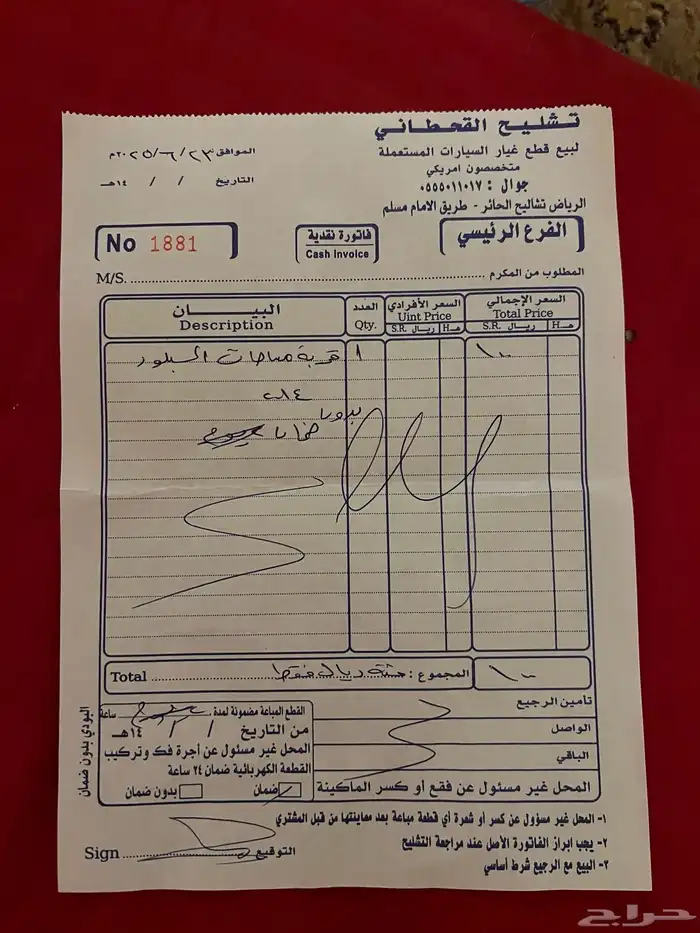 تشليح القحطاني
لبيع قطع غيار السيارات المستعملة
متخصصون امريكي
جوال : ٠٥٥٥٠١١٠١٧
الرياض تشاليح الحائر - طريق الامام مسلم
الموافق ٢٠٢٥/٦/٢٣م
التاريخ / / ١٤هـ
الفرع الرئيسي
فاتورة نقدية
Cash Invoice
No 1881
المطلوب من المكرم M/S.
البيـــــان العدد السعر الأفرادي السعر الإجمالي
Description Qty. Uint Price Total Price
S.R. ريال هـ H. S.R. ريال هـ H.
قربة مساحات ١ ١٠٠
٢٠١٤
Total المجموع : ريال فقط ١٠٠
القطع المباعة مضمونة لمدة ساعة
من التاريخ / / ١٤هـ
المحل غير مسئول عن أجرة فك وتركيب
القطعة الكهربائية ضمان ٢٤ ساعة
ضمان بدون ضمان
البودي بدون ضمان
تأمين الرجيع
الواصل
الباقي
المحل غير مسئول عن فقع أو كسر الماكينة
١- المحل غير مسؤول عن كسر أو شعرة أي قطعة مباعة بعد معاينتها من قبل المشتري
٢- يجب ابراز الفاتورة الأصل عند مراجعة التشليح
٣- البيع مع الرجيع شرط أساسي
التوقيع Sign
حراج